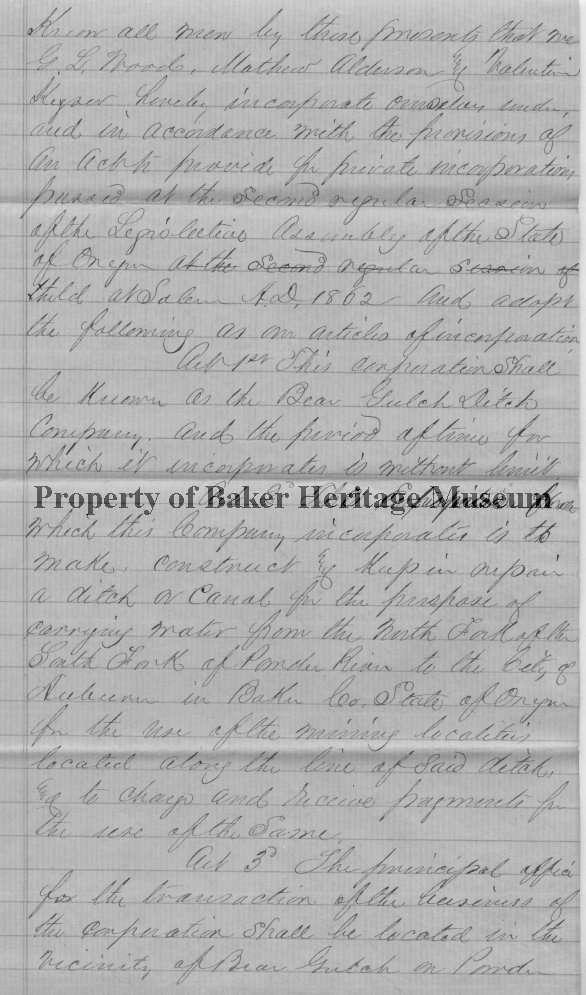 Know all men by these presents that we
G. L. Woods, Mathew Alderson & Valentin
Keyser hereby incorporate ourselves under
and in accordance with the provisions of
An Act to provide for private incorporations
passed at the Second regular Session
of the Legislative Assembly of the State
of Oregon at the Second regular Session of
Held at Salem A.D. 1862 And adopt
the following as our articles of incorporation
Art 1st This corporation Shall
be Known as the Bear Gulch Ditch
Company. And the period of time for
which it incorporates is without limit
Property of Baker Heritage Museum
which this Company incorporates is to
make, construct & Keep in repair
a ditch or Canal for the purpose of
carrying water from the North Fork of the
South Fork of Powder River to the City of
Auburn in Baker Co, State of Oregon
for the use of the mining localities
located along the line of Said ditch,
& to charge and receive payments for
the use of the Same.
Art 3d The principal office
for the transaction of the business of
the corporation Shall be located in the
vicinity of Bear Gulch on Powder